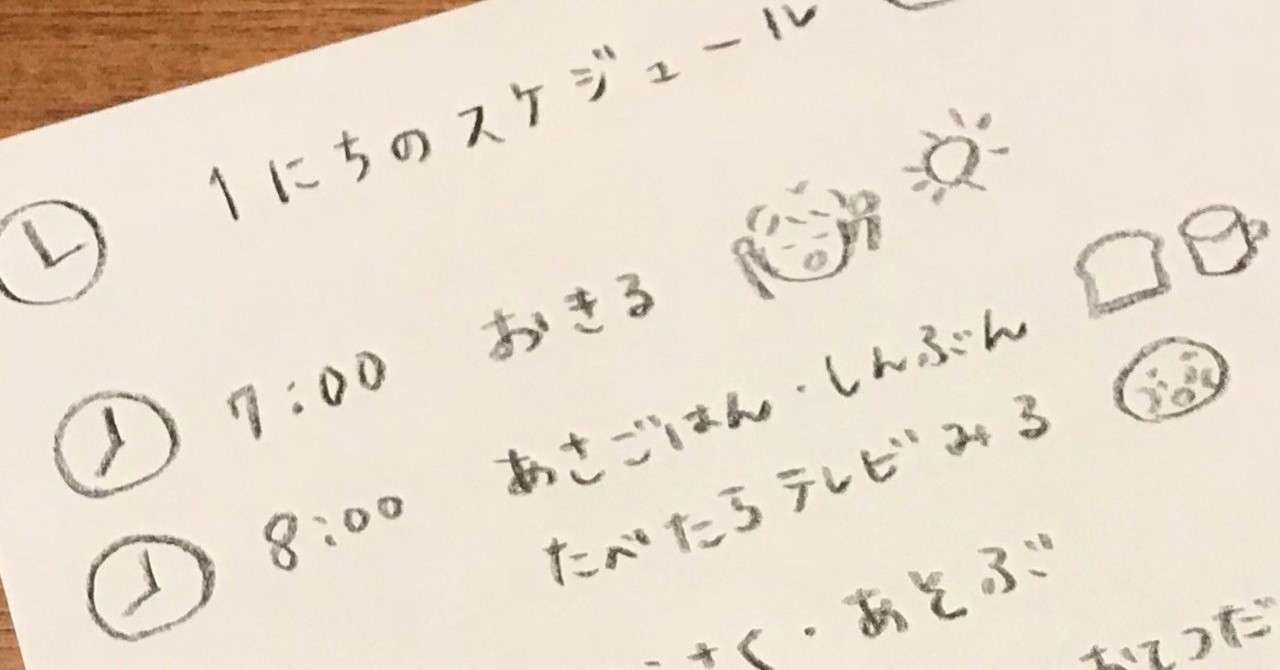 1にちのスケジュール
7:00 おきる
8:00 あさごはん・しんぶん
たべたらテレビみる
さく・あそぶ
おてつだ